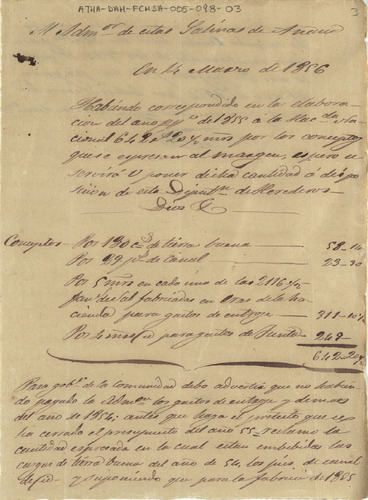 ATHA-DAH-FCHSA-005-098-03
3
Al Adm.or de estas Salinas de Anana
En 14 Marzo de 1856
Habiendo correspondido en la elabora-
cion del año pp.o de 1855 a la Hac.da Na-
cional 642 mrs por los conceptos
que se expresan al margen, espero se
servirá V poner dicha cantidad á dispo-
sicion de esta Diput.n de Herederos
Dios &
Conceptos Por 190 c.s de tierra buena 58-14
Por 29 de Canal 23-30
Por 5 mrs en cada una de las 2116 1/2
fan.s de sal fabricadas en eras de la ha-
cienda para gastos de entroje 311-
Por 4 mrs para gastos de Junta 249-
642-2
Para gob.o de la comunidad debo advertir que no habien-
do pagado la Adm.on los gastos de entroje y demas
del año de 1854, antes que haga el
ha cerrado el presupuesto del año 55, reclamo la
cantidad espresada en la cual estan embebidas las
cargas de tierra buena del año de 54, los pies de canal
y suponiendo que para la fabrica de 1855